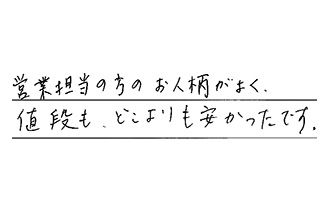 営業担当の方の お人柄がよく、
値段も、どこよりも安かったです。